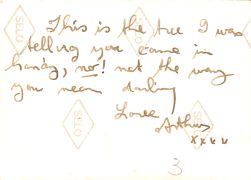 This is the tree I was
telling you came in
handy, no! not the way
you mean darling
Love
Arthur
xxxx
3
VELOX